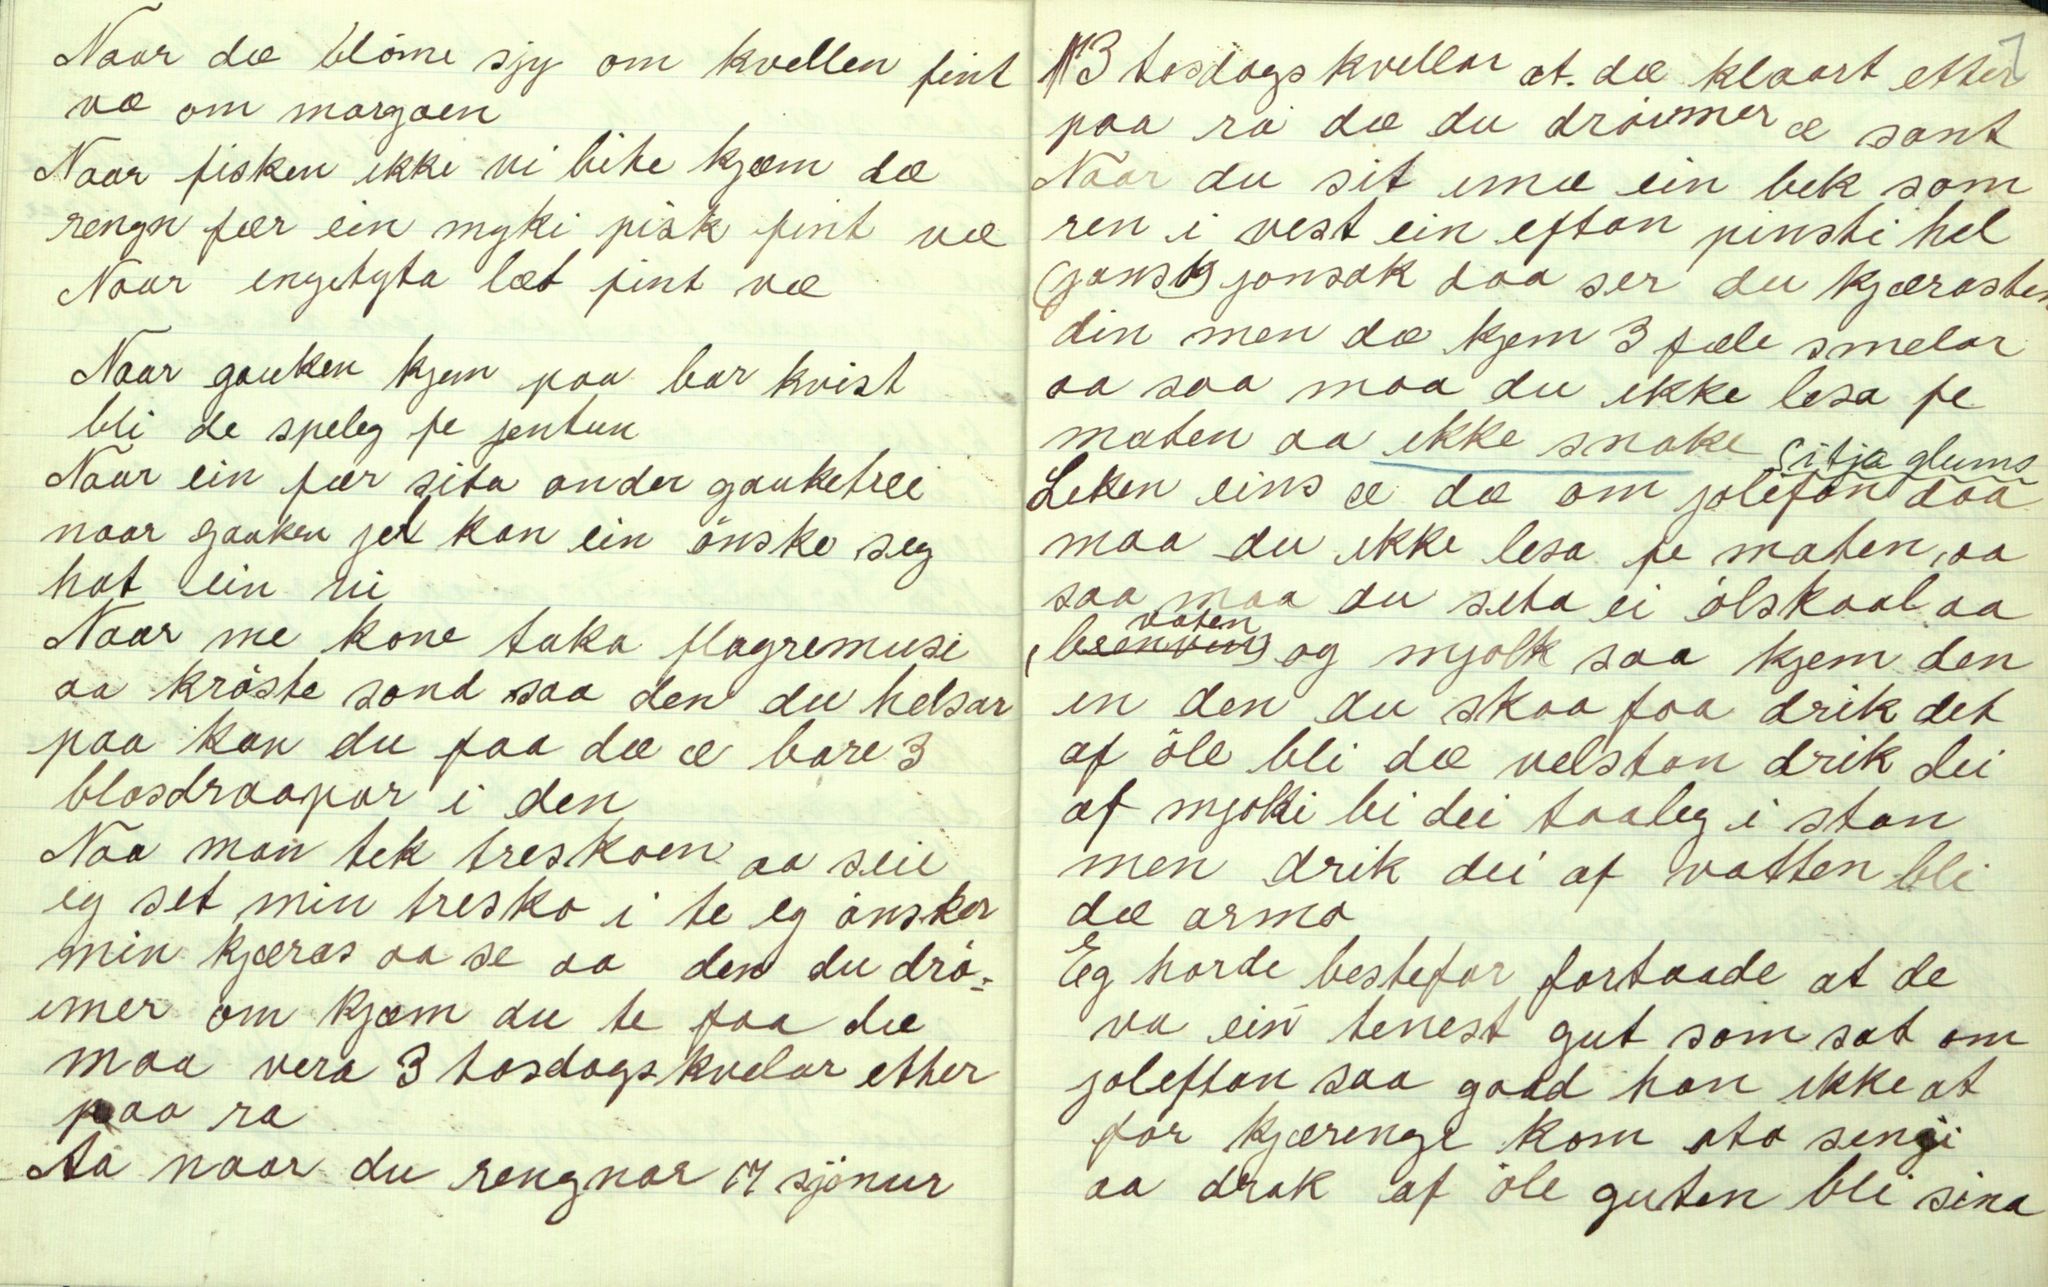 Naar dæ blöme sjy om kvellen fint
væ om margaen
Naar fisken ikke vi bite kjæm dæ
rengn fær ein myki fisk fint væ
Naar engetyta læt fint væ
Naar gauken kjem paa bar kvist
bli de speleg fe jentun
Naar ein fær sita onder gauketree
naar gauken jel kan ein önske seg
hot ein vi
Naar me kone taka flagremusi
aa kröste sond saa den du helsar
paa kan du faa dæ æ bare 3
blosdraapar i den
Naa man tek treskoen aa seie
eg set min tresko i te eg önsker
min kjæras aa se aa den du drö-
imer om kjæm du te faa dæ
maa vera 3 tosdagskvelar etter
paa ra
Aa naar du rengnar 17 sjönur
3 tosdagskvellar at dæ klaart etter 7
paa ra dæ du dröimer æ sant
Naar du sit imæ ein bek som
ren i vest ein eftan pinsti hel
(jons) jonsok daa ser du kjærasten
din men dæ kjem 3 fæle smelar
aa saa maa du ikke lesa fe
maten aa ikke snake sitja glums
Leken eins æ dæ om jolefan daa
maa du ikke lesa fe maten, aa
saa maa du seta ei ölskaal aa
vaten
(brenvin) og mjolk saa kjem den
en den du skaa faa drik det
af öle bli dæ velstan drik dei
af mjolki bi dei taaleg i stan
men drik dei af vatten bli
dæ armo
Eg horde bestefar fortaade at de
va ein tenest gut som sat om
joleftan saa gaad han ikke at
for kjærenge kom ata sengi
aa drak af öle guten bli sina